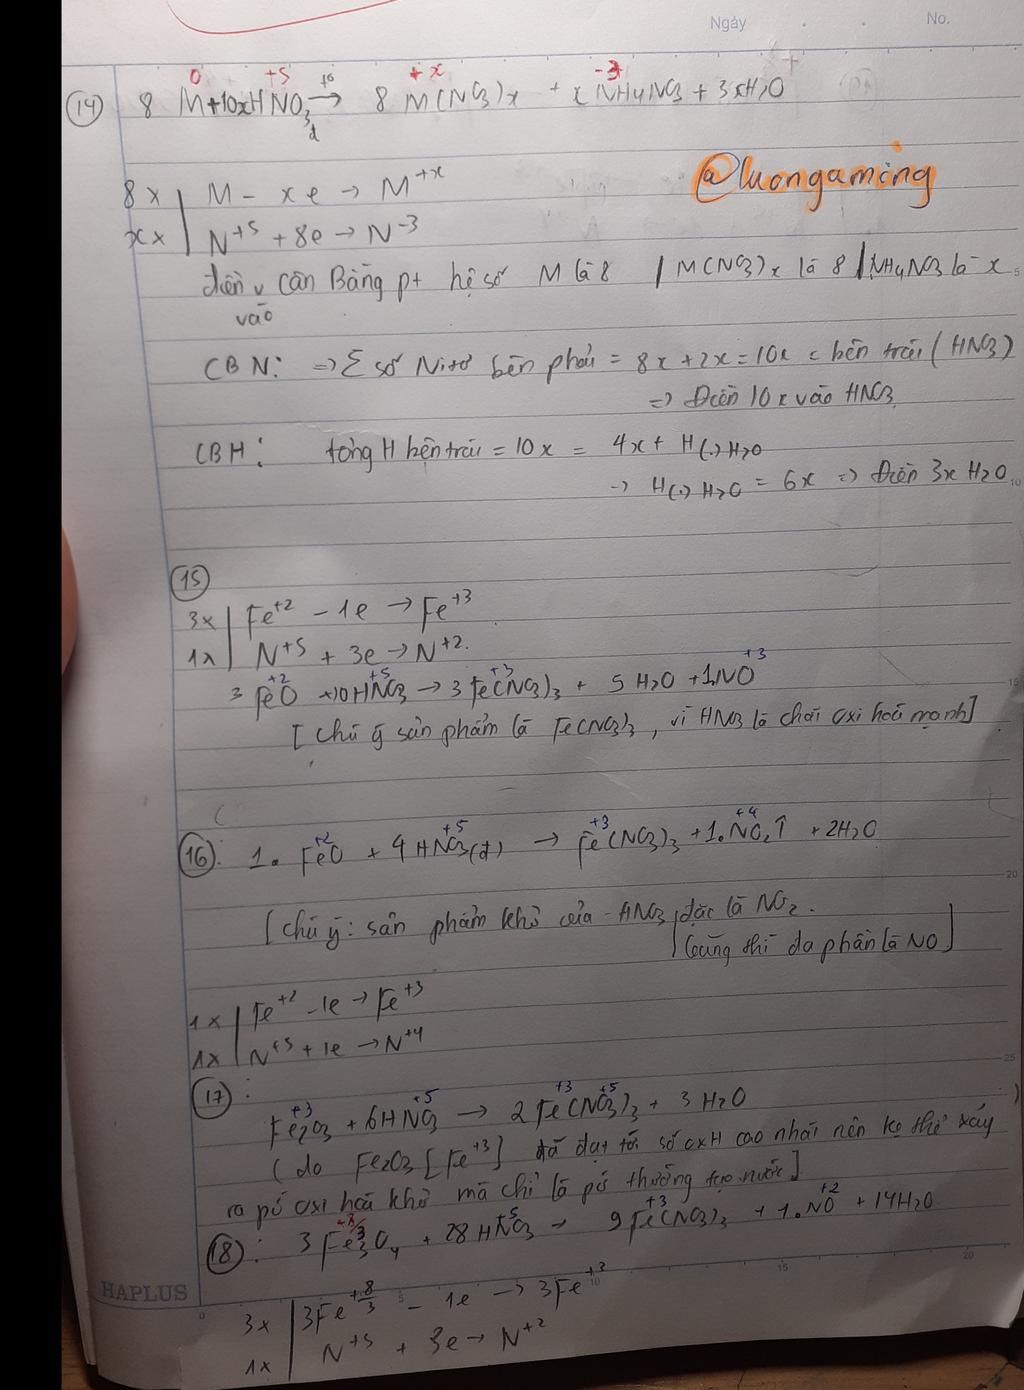 Ngày . . No.
(14) 8 M + 10xHNO3 → 8 M(NO3)x + x NH4NO3 + 3xH2O
0 +5 t° +x -3
d
@luongaming
8 x | M - xe → M+x
x x | N+5 + 8e → N-3
điền v cân Bằng pt hệ số M là 8 / M(NO3)x là 8 / NH4NO3 là x
vào
CBN: => Σ số Nitơ bên phải = 8x + 2x = 10x = bên trái (HNO3)
=> Điền 10x vào HNO3
CBH: tổng H bên trái = 10x = 4x + H(.) H2O
-> H(.) H2O = 6x => Điền 3x H2O
(15)
3x | Fe+2 - 1e → Fe+3
1x | N+5 + 3e → N+2.
+2 +5 +3 +3
3 FeO + 10HNO3 → 3 Fe(NO3)3 + 5 H2O + 1.NO
[chú ý sản phẩm là Fe(NO3)3, vì HNO3 là chất oxi hoá mạnh]
+2 +5 +3 +4
(16): 1. FeO + 4 HNO3(đ) → Fe(NO3)3 + 1.NO2↑ + 2H2O
[chú ý: sản phẩm khử của HNO3 đặc là NO2.
loãng thì đa phần là NO]
1x | Fe+2 - 1e → Fe+3
1x | N+5 + 1e → N+4
(17):
+3 +5 +3 +5
Fe2O3 + 6HNO3 → 2 Fe(NO3)3 + 3 H2O
(do Fe2O3 [Fe+3] đã đạt tới số oxH cao nhất nên ko thể xảy
ra pứ oxi hoá khử mà chỉ là pứ thường tạo nước]
+8/3 +5 +3 +2
(18): 3 Fe3O4 + 28 HNO3 → 9 Fe(NO3)3 + 1.NO + 14H2O
3x | 3Fe+8/3 - 1e → 3Fe+3
1x | N+5 + 3e → N+2
HAPLUS
5
10
15
20
25
0 5 10 15 20